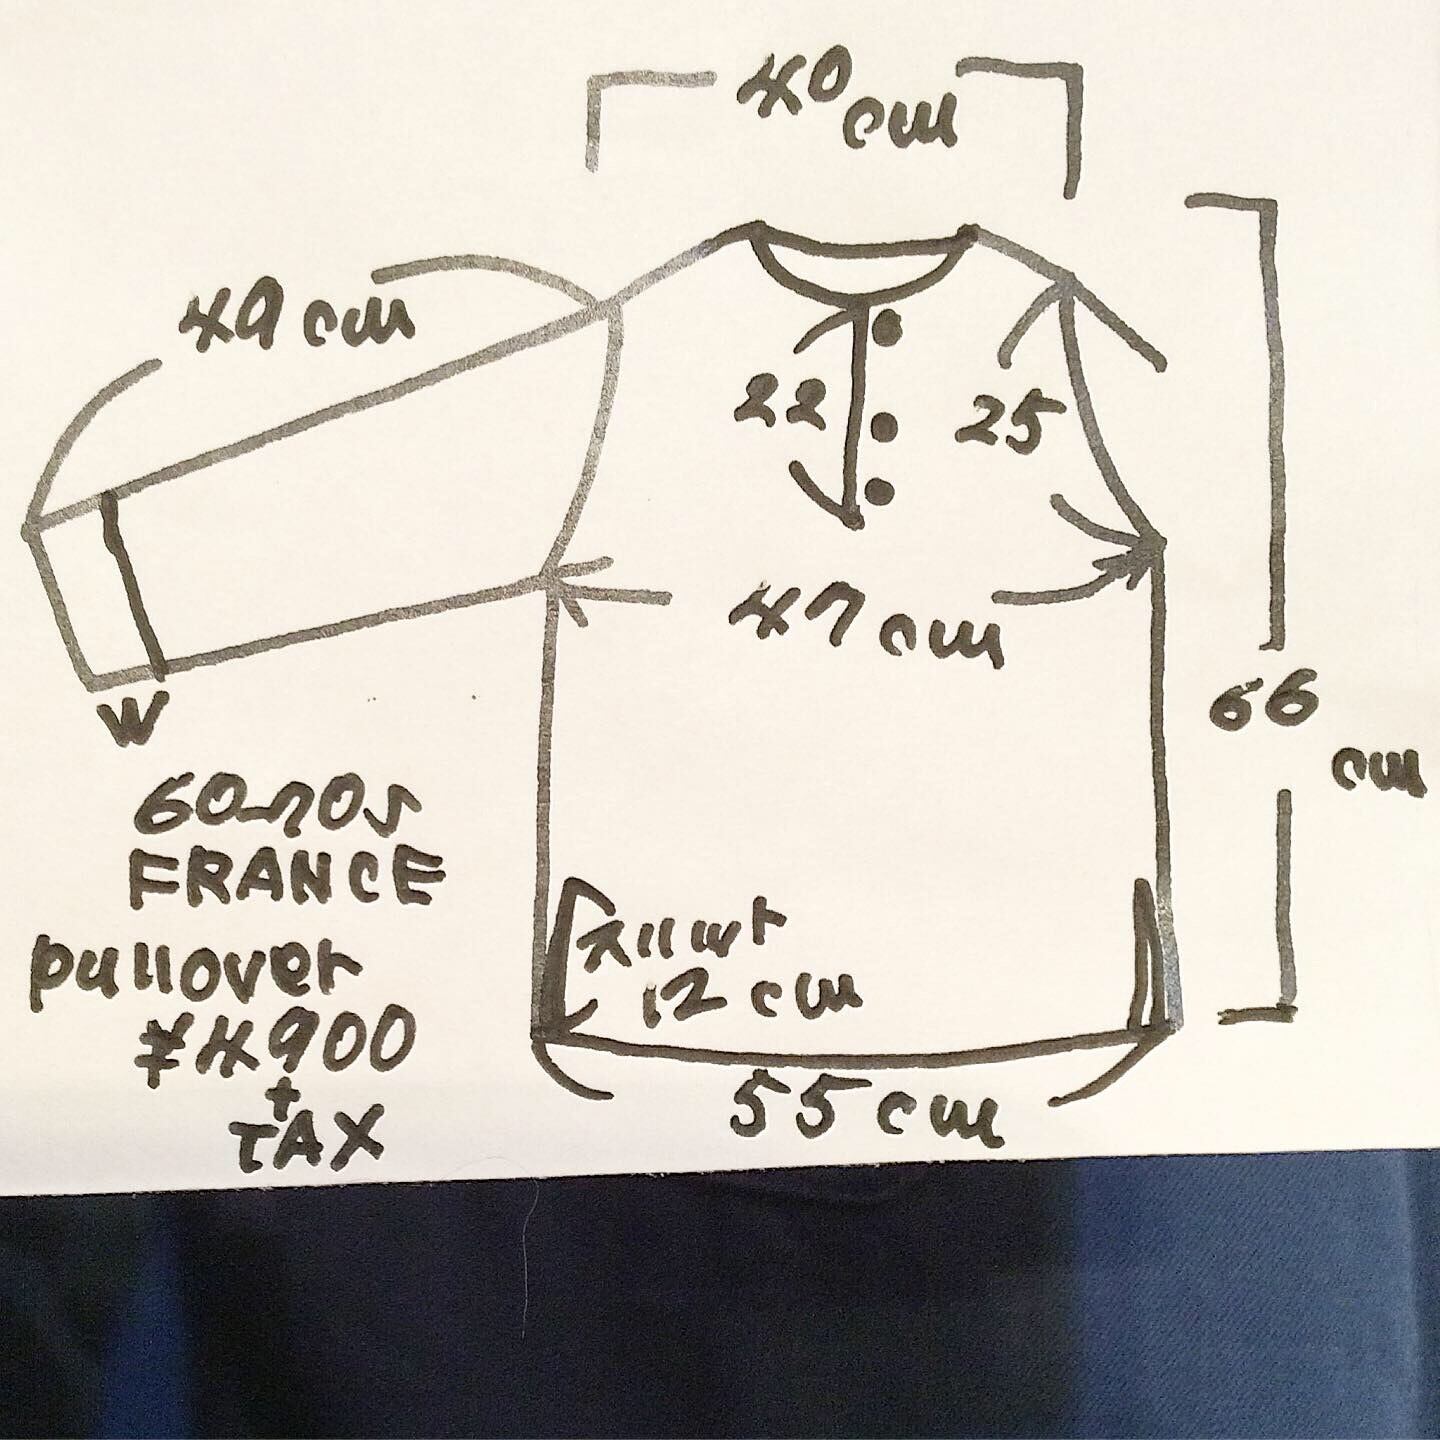 40 cm
49 cm
22
25
47 cm
66 cm
W
60~70s
FRANCE
pullover
¥4900
+
TAX
12 cm
55 cm